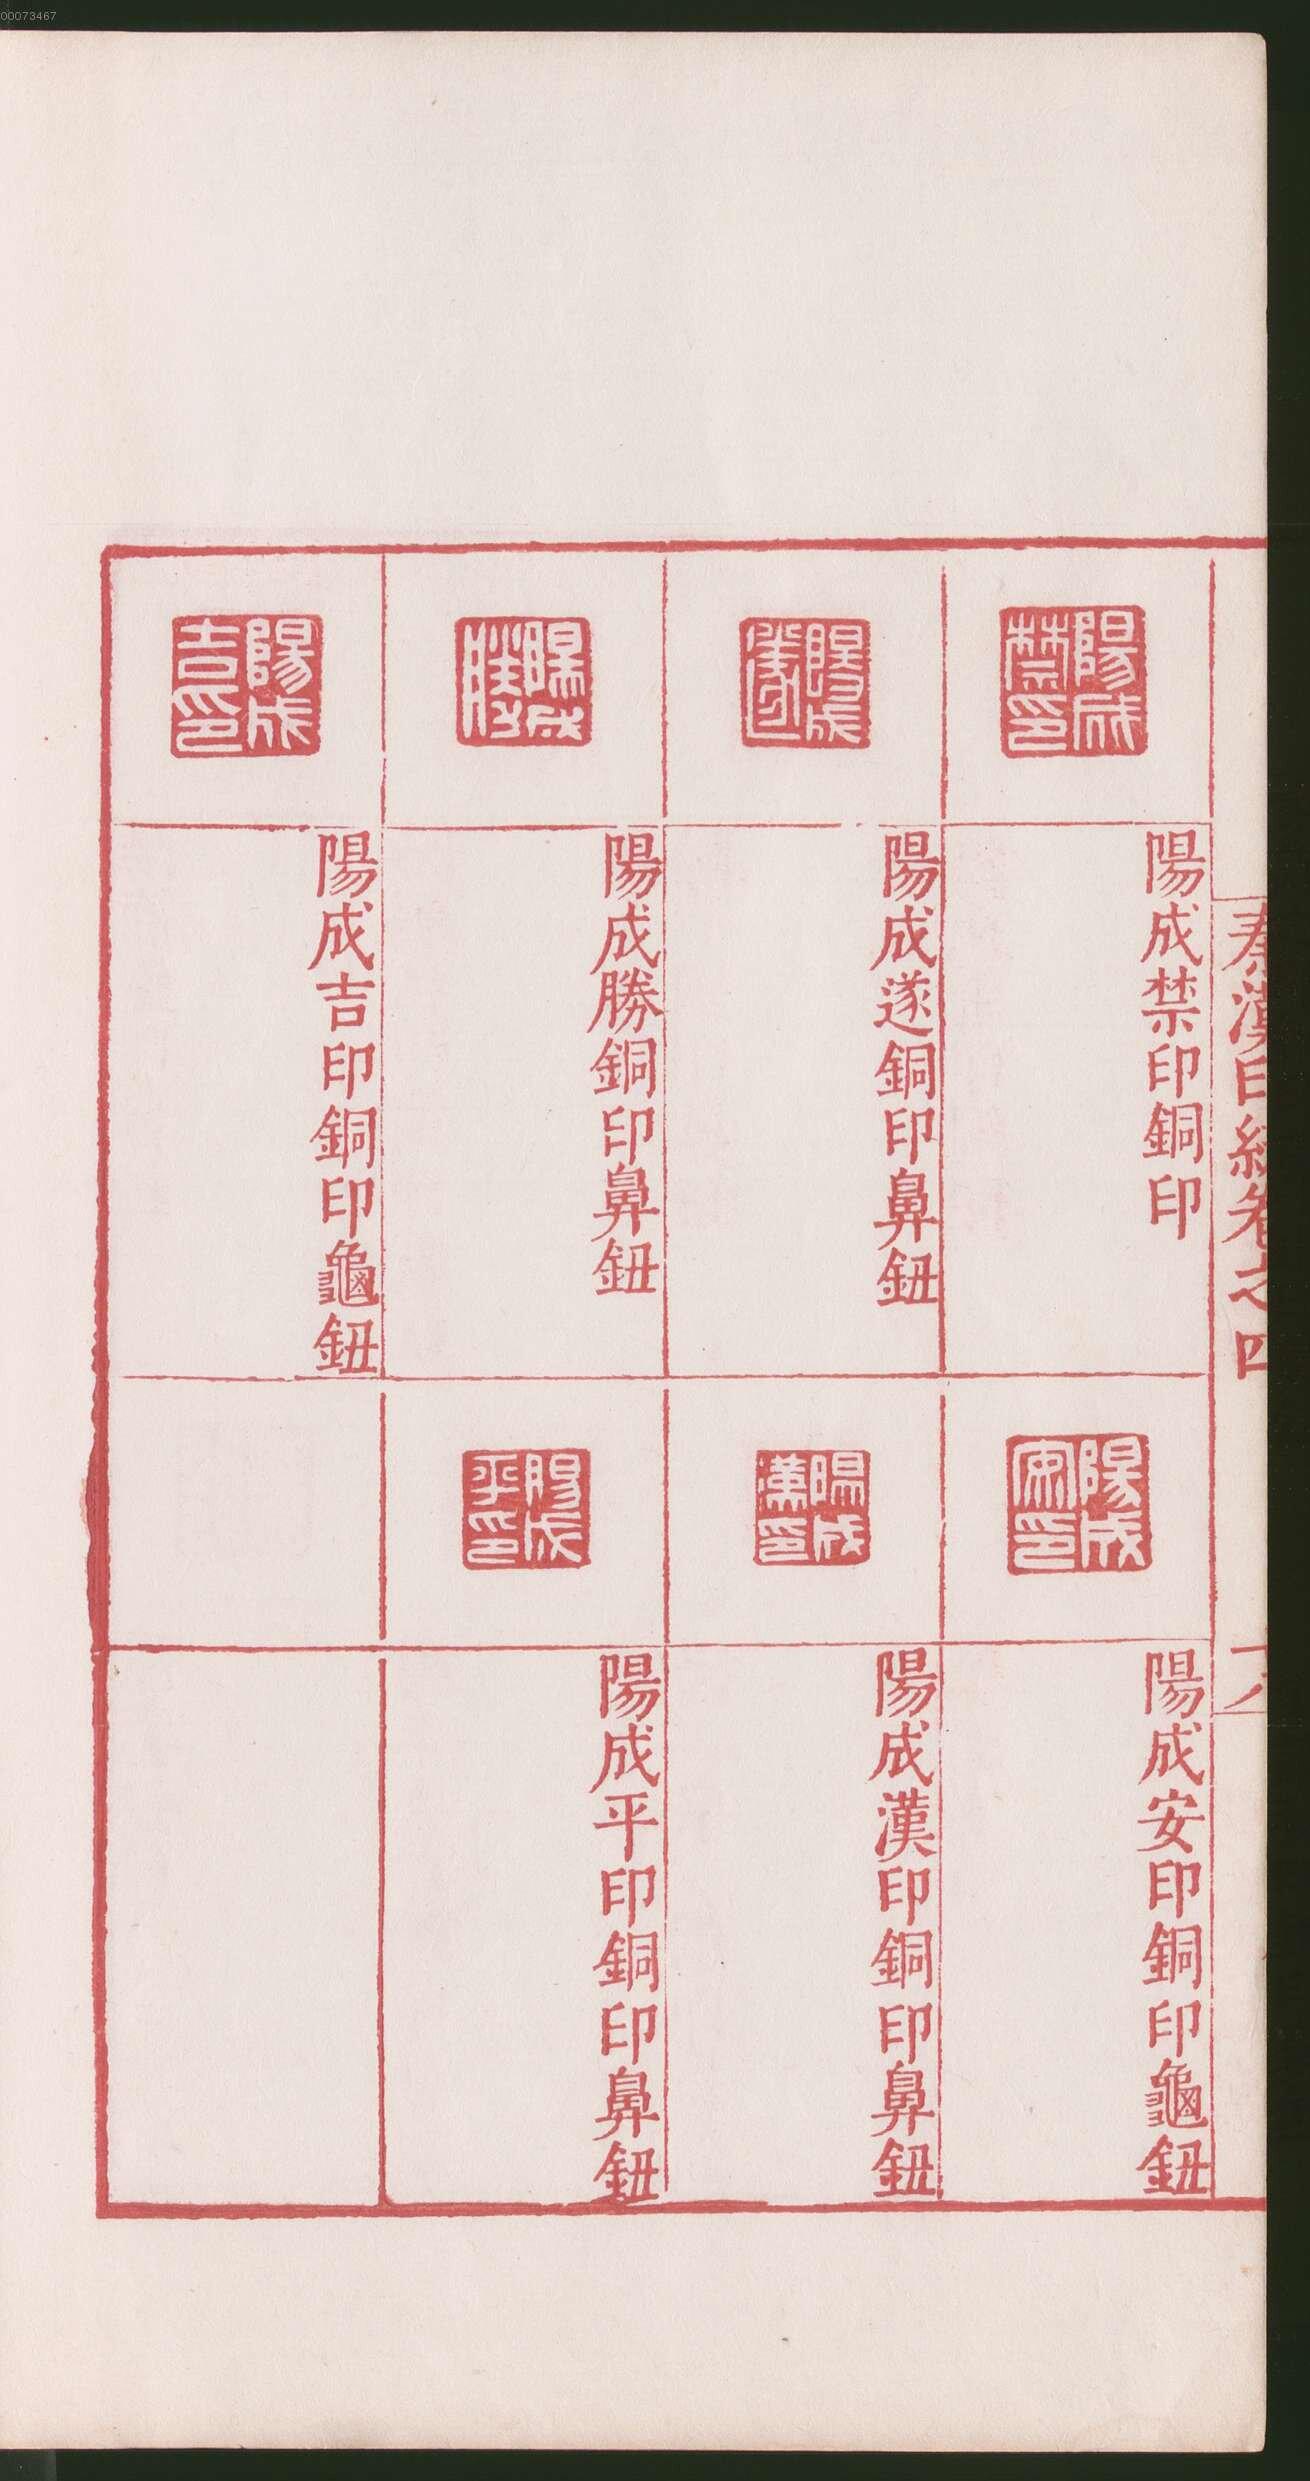 00073467
秦漢印統卷之四
六
陽成禁印
陽成禁印銅印
陽成遂
陽成遂銅印鼻鈕
陽成勝
陽成勝銅印鼻鈕
陽成吉印
陽成吉印銅印龜鈕
陽成安印
陽成安印銅印龜鈕
陽成漢印
陽成漢印銅印鼻鈕
陽成平印
陽成平印銅印鼻鈕